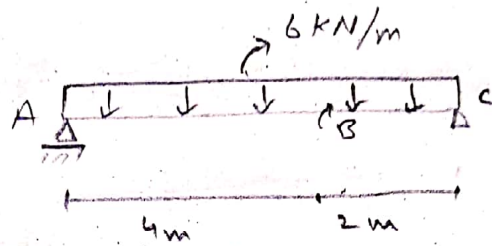 6 KN/m
A
C
B
4m
2m